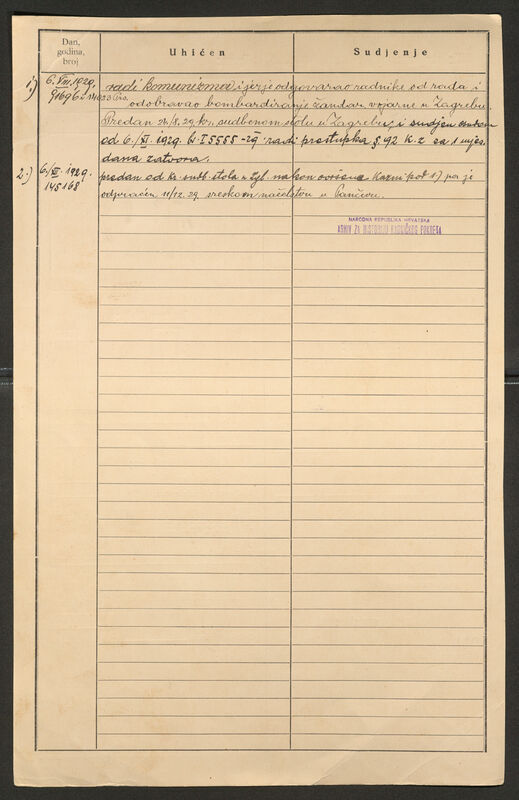 Dan,
godina,
broj
Uhićen
Sudjenje
1.) 6. VIII. 1929. radi komunizma i jer je odgovarao radnike od rada i
odobravao bombardiranje žandar. vojarne u Zagrebu.
Predan 24/8. 29 kr. sudbenom stolu u Zagrebu, i sudjen
od 6./XI. 1929. 5585-29 radi prestupka § 92 K.z. sa 1 mjes.
dana zatvora.
2.) 6./XII. 1929. predan od kr. sudb. stola u Zgb. nakon ovršene kazni pod 1) pa je
145168 odpraćen 11/12. 29 sreskom načelstvu u Pančevu.
NARODNA REPUBLIKA HRVATSKA
ARHIV ZA HISTORIJU RADNIČKOG POKRETA